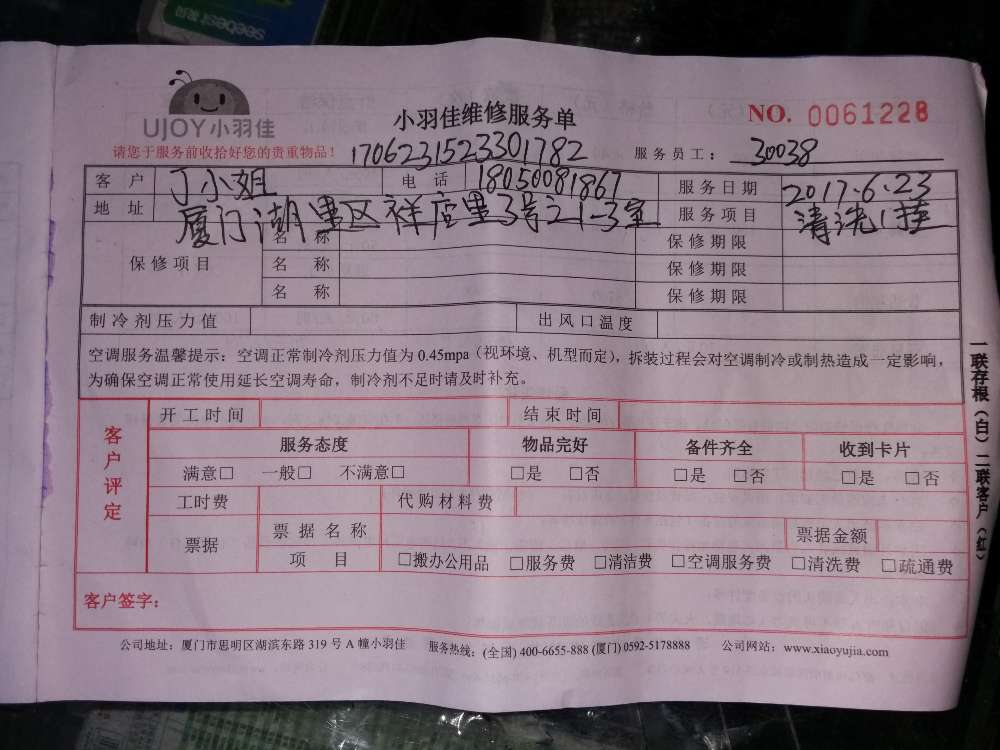 seebest
UJOY小羽佳
小羽佳维修服务单
NO. 0061228
请您于服务前收拾好您的贵重物品！
1706231523301782
服务员工： 30038
客 户 丁小姐 电 话 18050081867 服务日期 2017.6.23
地 址 厦门湖里区祥店里3号之1-3室 服务项目 清洗1挂
保修项目 名 称 保修期限
名 称 保修期限
名 称 保修期限
制冷剂压力值 出风口温度
空调服务温馨提示：空调正常制冷剂压力值为 0.45mpa（视环境、机型而定），拆装过程会对空调制冷或制热造成一定影响，
为确保空调正常使用延长空调寿命，制冷剂不足时请及时补充。
客户评定
开工时间 结束时间
服务态度 物品完好 备件齐全 收到卡片
满意□ 一般□ 不满意□ □是 □否 □是 □否 □是 □否
工时费 代购材料费
票据 票据名称 票据金额
项 目 □搬办公用品 □服务费 □清洁费 □空调服务费 □清洗费 □疏通费
客户签字：
公司地址：厦门市思明区湖滨东路 319 号 A 幢小羽佳 服务热线：(全国) 400-6655-888 (厦门) 0592-5178888 公司网站：www.xiaoyujia.com
一联存根（白）二联客户（红）